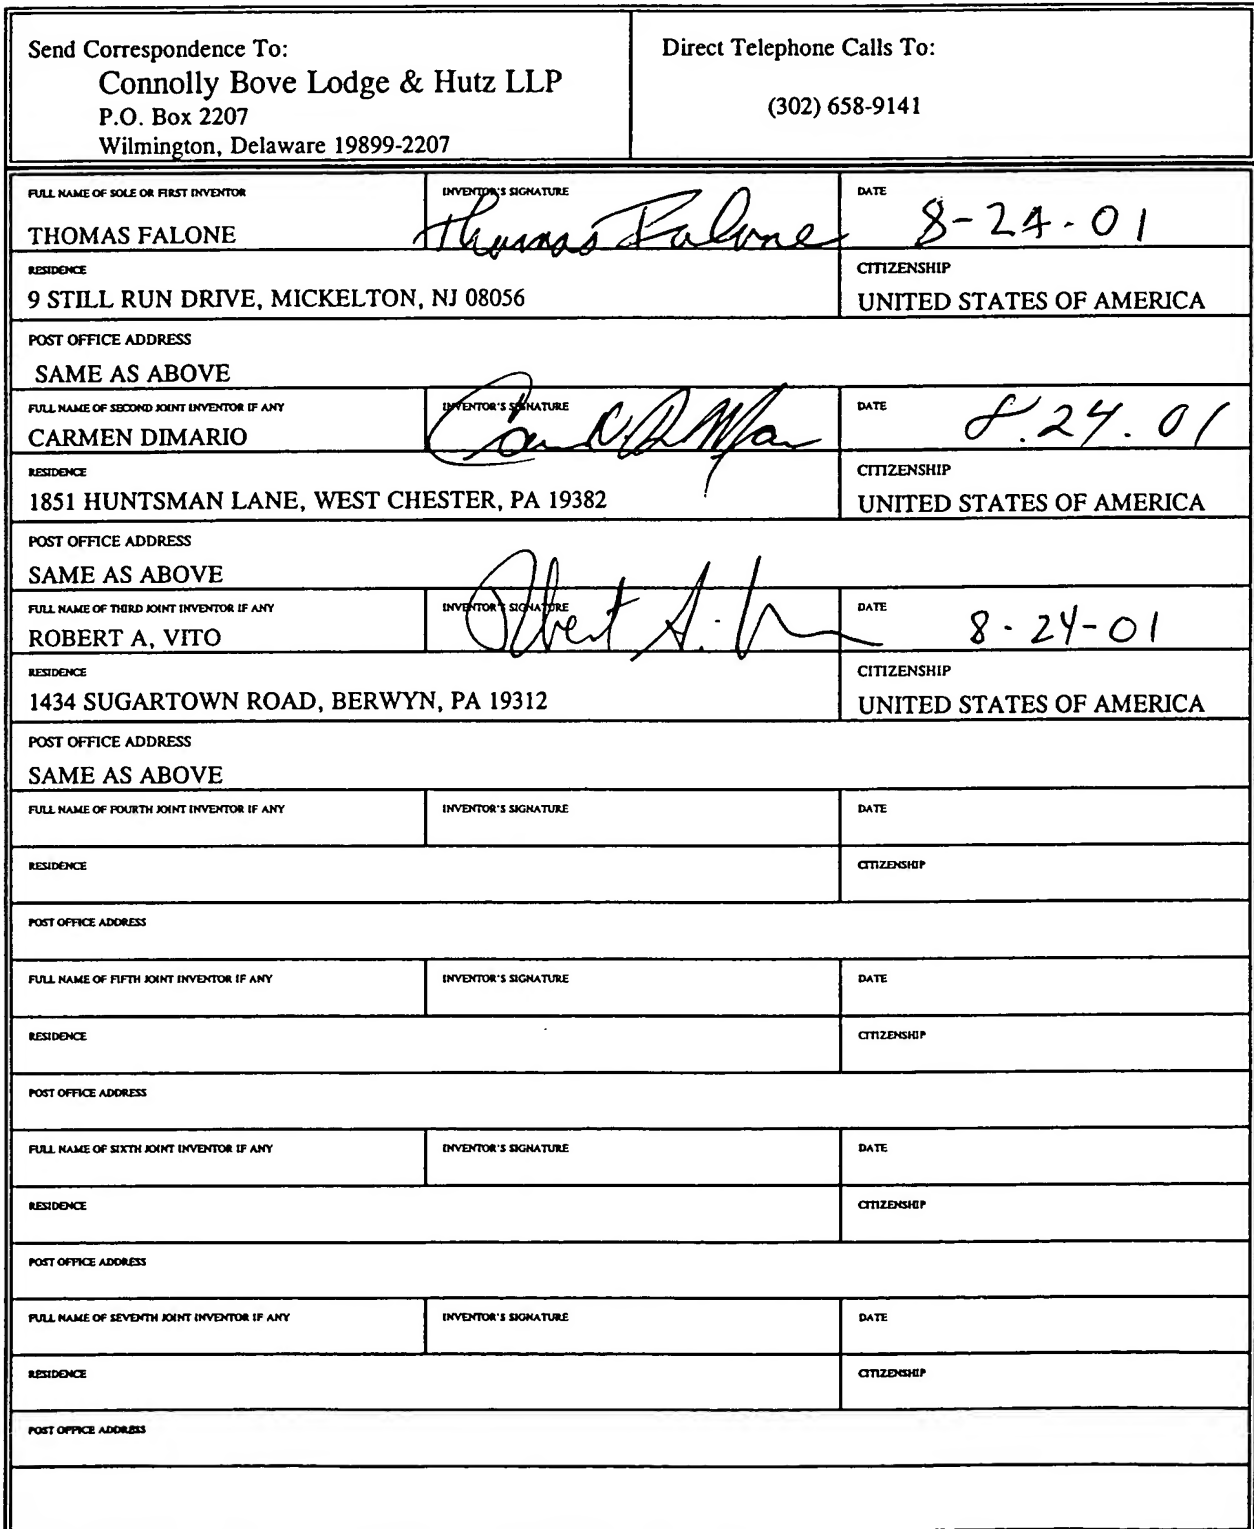 Send Correspondence To:
Connolly Bove Lodge & Hutz LLP
P.O. Box 2207
Wilmington, Delaware 19899-2207
Direct Telephone Calls To:
(302) 658-9141
FULL NAME OF SOLE OR FIRST INVENTOR
THOMAS FALONE
INVENTOR'S SIGNATURE
Thomas Falone
DATE
8-24-01
RESIDENCE
9 STILL RUN DRIVE, MICKELTON, NJ 08056
CITIZENSHIP
UNITED STATES OF AMERICA
POST OFFICE ADDRESS
SAME AS ABOVE
FULL NAME OF SECOND JOINT INVENTOR IF ANY
CARMEN DIMARIO
INVENTOR'S SIGNATURE
DATE
8.24.01
RESIDENCE
1851 HUNTSMAN LANE, WEST CHESTER, PA 19382
CITIZENSHIP
UNITED STATES OF AMERICA
POST OFFICE ADDRESS
SAME AS ABOVE
FULL NAME OF THIRD JOINT INVENTOR IF ANY
ROBERT A, VITO
INVENTOR'S SIGNATURE
DATE
8-24-01
RESIDENCE
1434 SUGARTOWN ROAD, BERWYN, PA 19312
CITIZENSHIP
UNITED STATES OF AMERICA
POST OFFICE ADDRESS
SAME AS ABOVE
FULL NAME OF FOURTH JOINT INVENTOR IF ANY
INVENTOR'S SIGNATURE
DATE
RESIDENCE
CITIZENSHIP
POST OFFICE ADDRESS
FULL NAME OF FIFTH JOINT INVENTOR IF ANY
INVENTOR'S SIGNATURE
DATE
RESIDENCE
CITIZENSHIP
POST OFFICE ADDRESS
FULL NAME OF SIXTH JOINT INVENTOR IF ANY
INVENTOR'S SIGNATURE
DATE
RESIDENCE
CITIZENSHIP
POST OFFICE ADDRESS
FULL NAME OF SEVENTH JOINT INVENTOR IF ANY
INVENTOR'S SIGNATURE
DATE
RESIDENCE
CITIZENSHIP
POST OFFICE ADDRESS